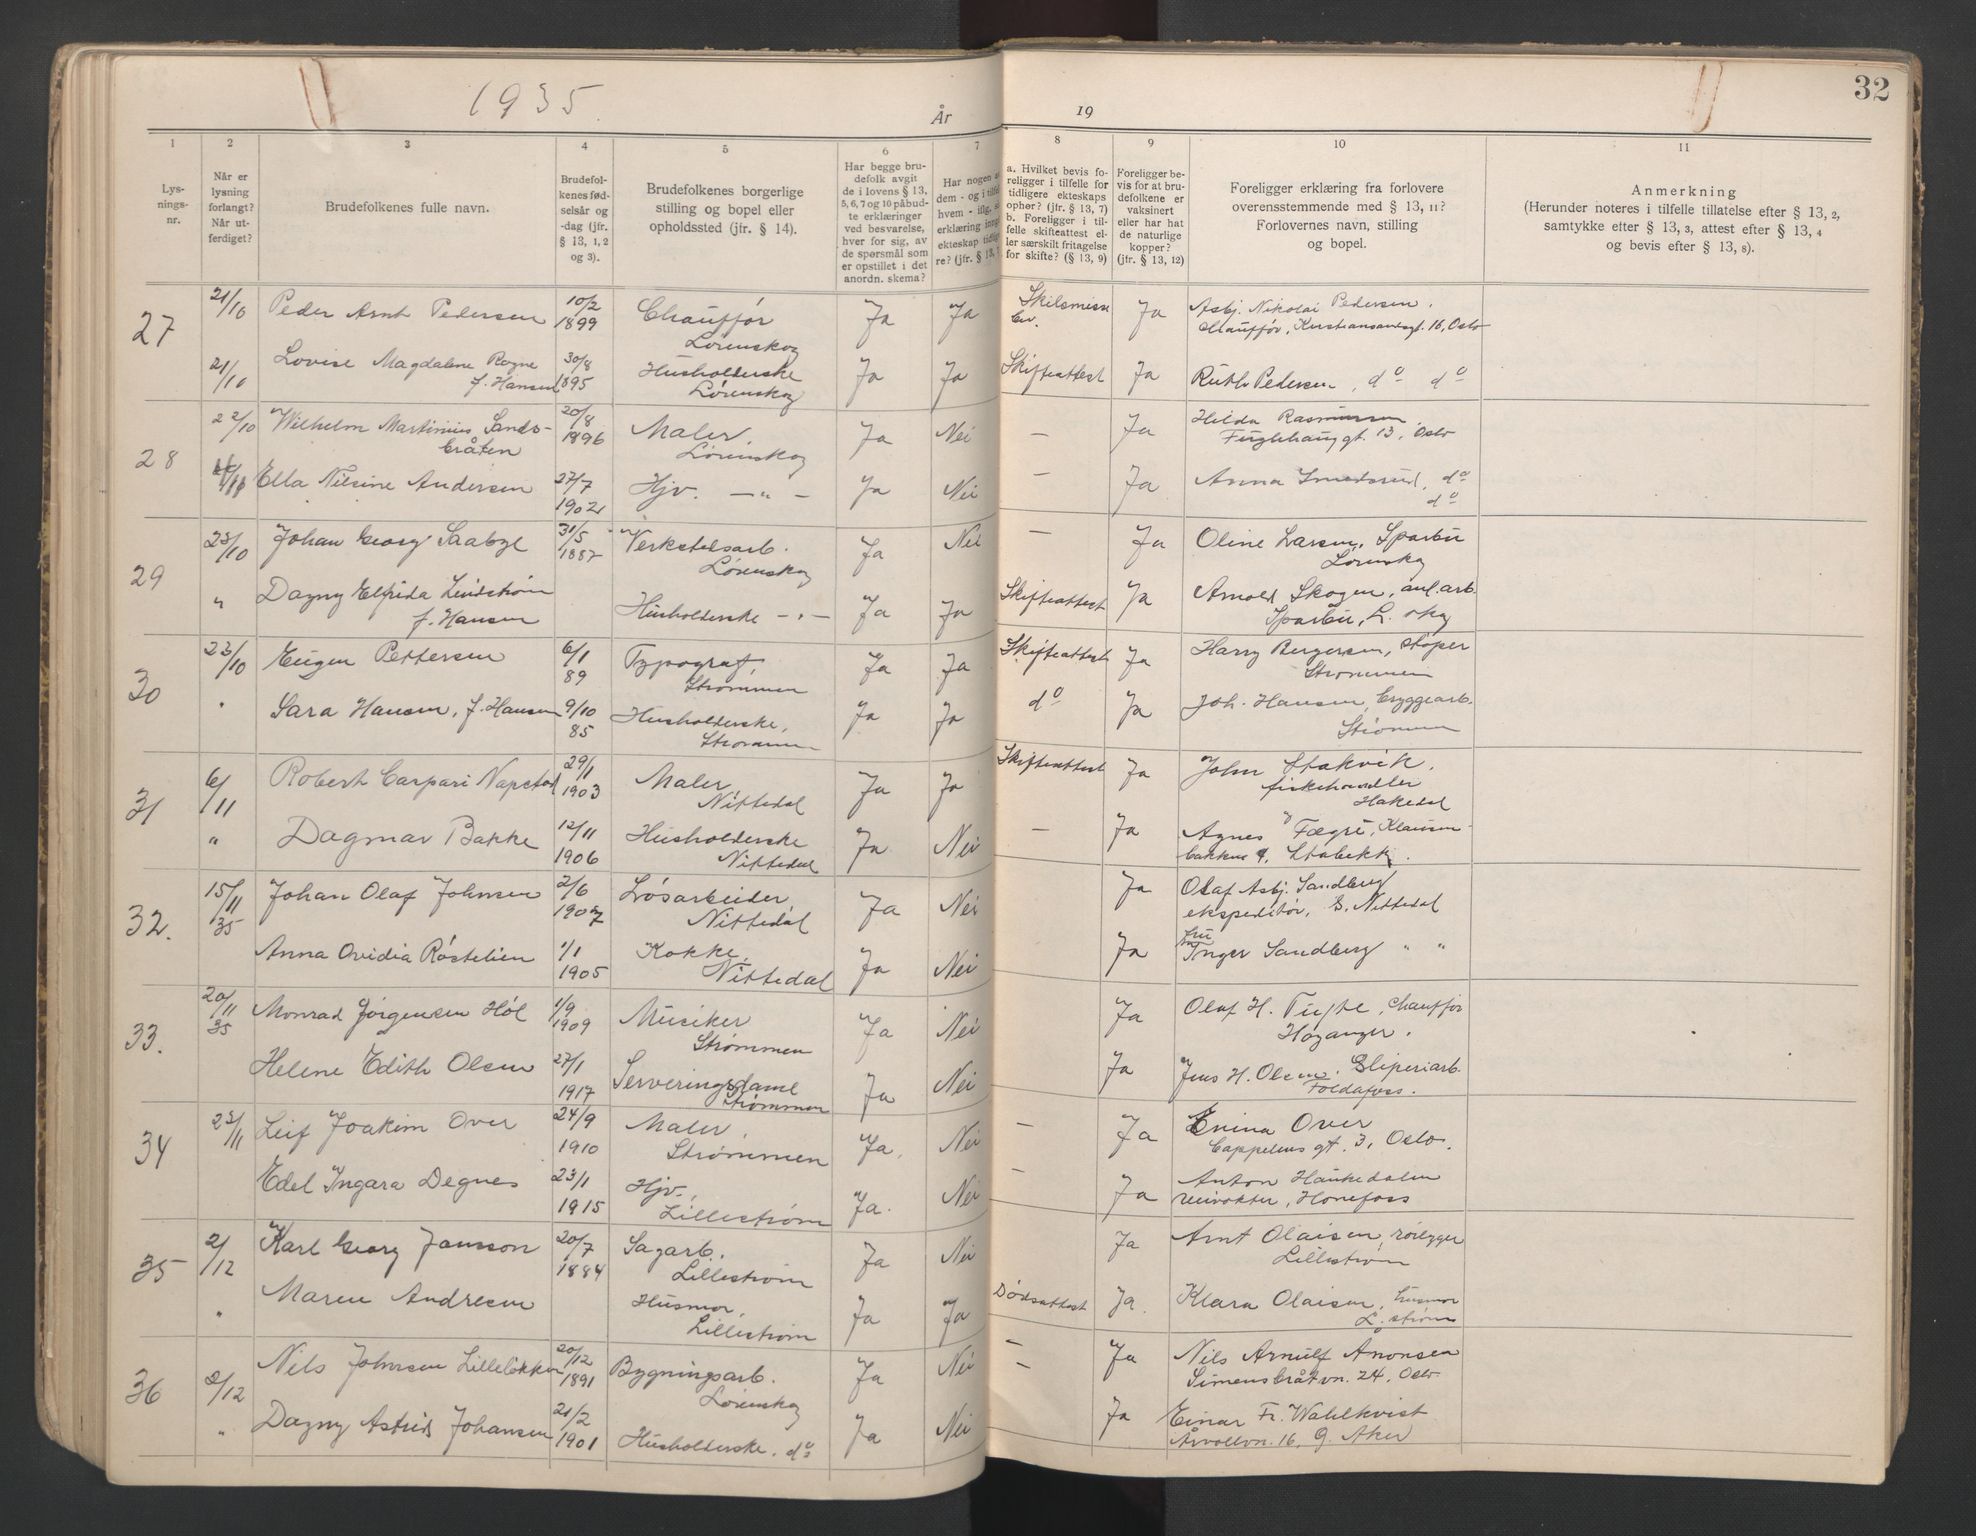 1935
År
19
32
1
2
3
4
5
6
7
8
9
10
11
Lys-
nings-
nr.
Når er
lysning
forlangt?
Når ut-
ferdiget?
Brudefolkenes fulle navn.
Brudefol-
kenes fød-
selsår og
-dag (jfr.
§ 13, 1, 2
og 3).
Brudefolkenes borgerlige
stilling og bopel eller
opholdssted (jfr. § 14).
Har begge bru-
defolk avgit
de i lovens § 13,
5, 6, 7 og 10 påbud-
te erklæringer
ved besvarelse,
hver for sig, av
de spørsmål som
er opstillet i det
anordn. skema?
Har nogen a
dem - og i tilfel
hvem - iflg. s
erklæring inng
ekteskap tidlig
re? (jfr. § 13,
a. Hvilket bevis fo-
religger i tilfelle for
tidligere ekteskaps
opher? (jfr. § 13, 7)
b. Foreligger i til-
felle skifteattest el-
ler særskilt fritagelse
for skifte? (§ 13, 9)
Foreligger be-
vis for at bru-
defolkene er
vaksinert
eller har hat
de naturlige
kopper?
(jfr. § 13, 12)
Foreligger erklæring fra forlovere
overensstemmende med § 13, 11?
Forlovernes navn, stilling
og bopel.
Anmerkning
(Herunder noteres i tilfelle tillatelse efter § 13, 2,
samtykke efter § 13, 3, attest efter § 13, 4
og bevis efter § 13, 8).
27 21/10 Peder Arnt Pedersen 10/2 1899 Chauffør Lørenskog Ja Ja Skilsmisse bev. Ja Asbj. Nikolai Pedersen.
Chauffør, Kristiansandsgt. 16, Oslo
21/10 Lovise Magdalene Rogne f. Hansen 30/8 1895 Husholderske Lørenskog Ja Ja Skifteattest Ja Ruth Pedersen, do do
28 22/10 Wilhelm Martinius Sands-
bråten 20/8 1896 Maler, Lørenskog Ja Nei — Ja Hilda Rasmussen
Fuglehauggt. 13, Oslo
Ella Nilsine Andersen 27/7 1902 Hjv. — " — Ja Nei — Ja Anna Smedsrud, do
do
29 23/10 Johan Georg Saabye 31/5 1887 Verkstedsarb. Lørenskog Ja Nei — Ja Oline Larsen, Sparbu
Lørenskog
" Dagny Elfrida Lindstrøm
f. Hansen Husholderske — " — Ja Ja Skifteattest Ja Arnold Skogen, anl.arb.
Sparbu, L. skog
30 23/10 Eugen Pettersen 6/1 89 Typograf, Strømmen Ja Ja Skifteattest Ja Harry Bergersen, støper
Strømmen
" Sara Hansen, f. Hansen 9/10 85 Husholderske, Strømmen Ja Ja do Ja Joh. Hansen, bryggearb.
Strømmen
31 6/11 Robert Carpari Napstad 29/1 1903 Maler, Nittedal Ja Ja Skifteattest Ja John Stakvik,
fiskehandler
Hakedal
" Dagmar Bakke 12/11 1906 Husholderske Nittedal Ja Nei — Ja Agnes Fægri, Klausen-
bakken 9, Stabekk.
32. 15/11 35 Johan Olaf Johnsen 2/6 1907 Løsarbeider Nittedal Ja Nei Ja Olaf Asbj. Sandberg
ekspeditør, S. Nittedal
Anna Ovidia Røstelien 1/1 1905 Kokke, Nittedal Ja Nei Ja fru Inger Sandberg " "
33. 20/11 35 Monrad Jørgensen Høl 1/9 1909 Musiker Strømmen Ja Nei Ja Olaf H. Tufte, Chauffør
Høyanger.
Helene Edith Olsen 27/1 1917 Serveringsdame Strømmen Ja Nei Ja Jens H. Olsen. Sliperiarb.
Foldafoss.
34 23/11 Leif Joakim Over 24/9 1910 Maler, Strømmen Ja. Nei — Ja Enina Over
Cappelens gt. 3, Oslo.
Edel Ingara Degnes 23/1 1915 Hjv., Lillestrøm Ja. Nei — Ja Anton Haukedalen
veivokter, Hønefoss
35 2/12 Karl Georg Jansson 20/7 1884 Sagarb. Lillestrøm Ja Nei Ja Arnt Olaisen, rørlegger
Lillestrøm
" Maren Andresen Husmor, Lillestrøm Ja Ja Dødsattest Ja. Klara Olaisen, husmor
L. strøm
36 2/12 Nils Johnsen Lilleløkken 20/12 1891 Bygningsarb. Lørenskog Ja Nei — — Ja Nils Arnulf Aronsen
Simensbråtvn. 24, Oslo
" Dagny Astrid Johansen 21/2 1901 Husholderske. do Ja Nei Ja Einar Fr. Wahlkvist
Årvollvn. 16, Ø. Aker